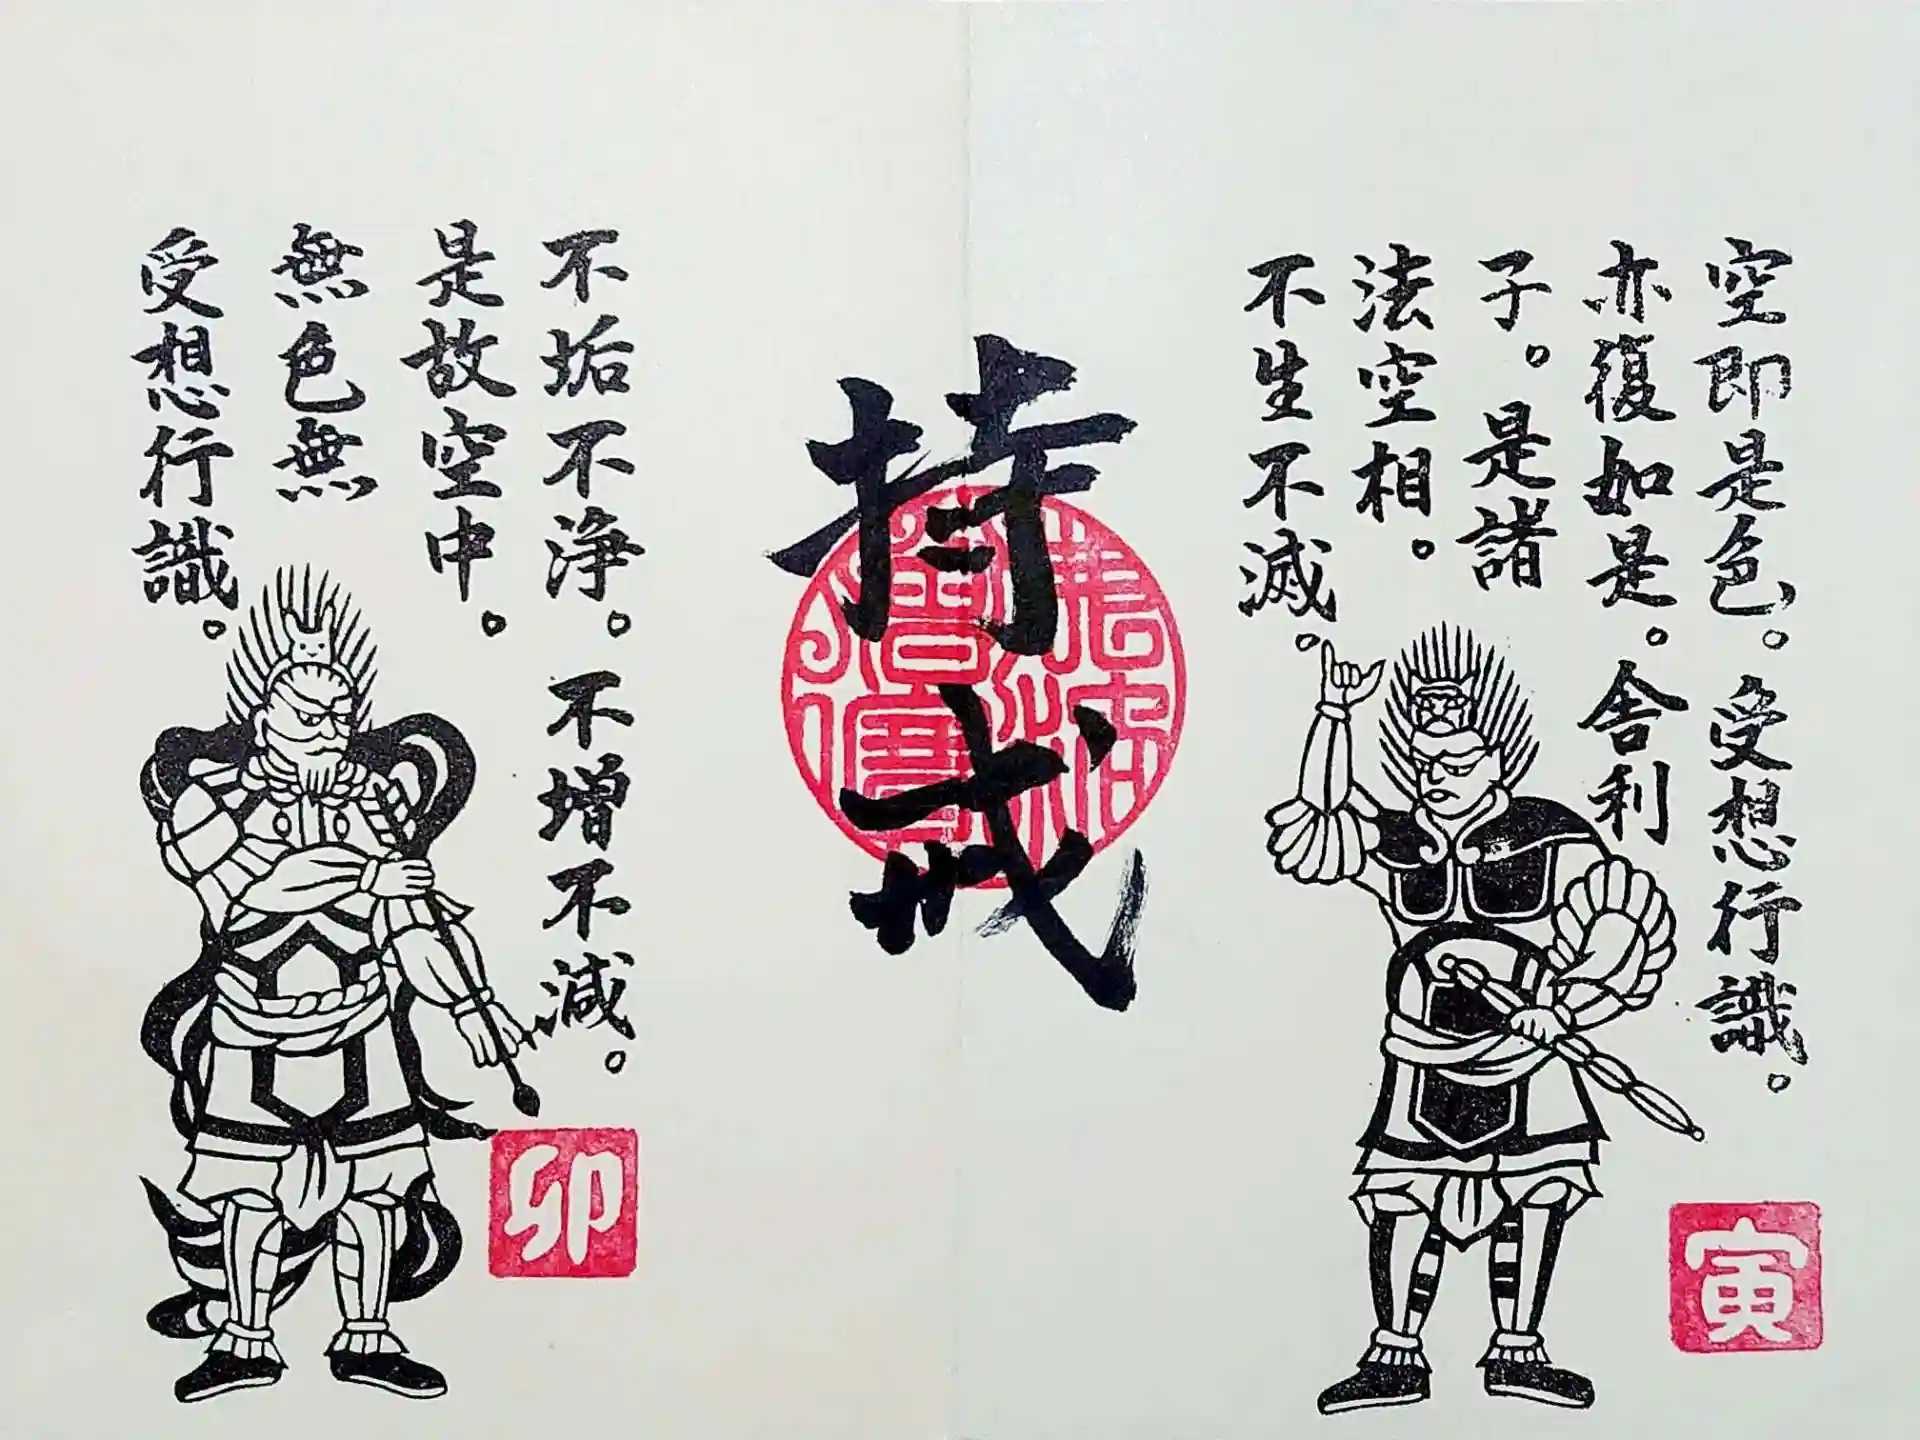 空即是色。受想行識。
亦復如是。舎利
子。是諸
法空相。
不生不滅。
寅
持戒
不垢不浄。不増不減。
是故空中。
無色無
受想行識。
卯